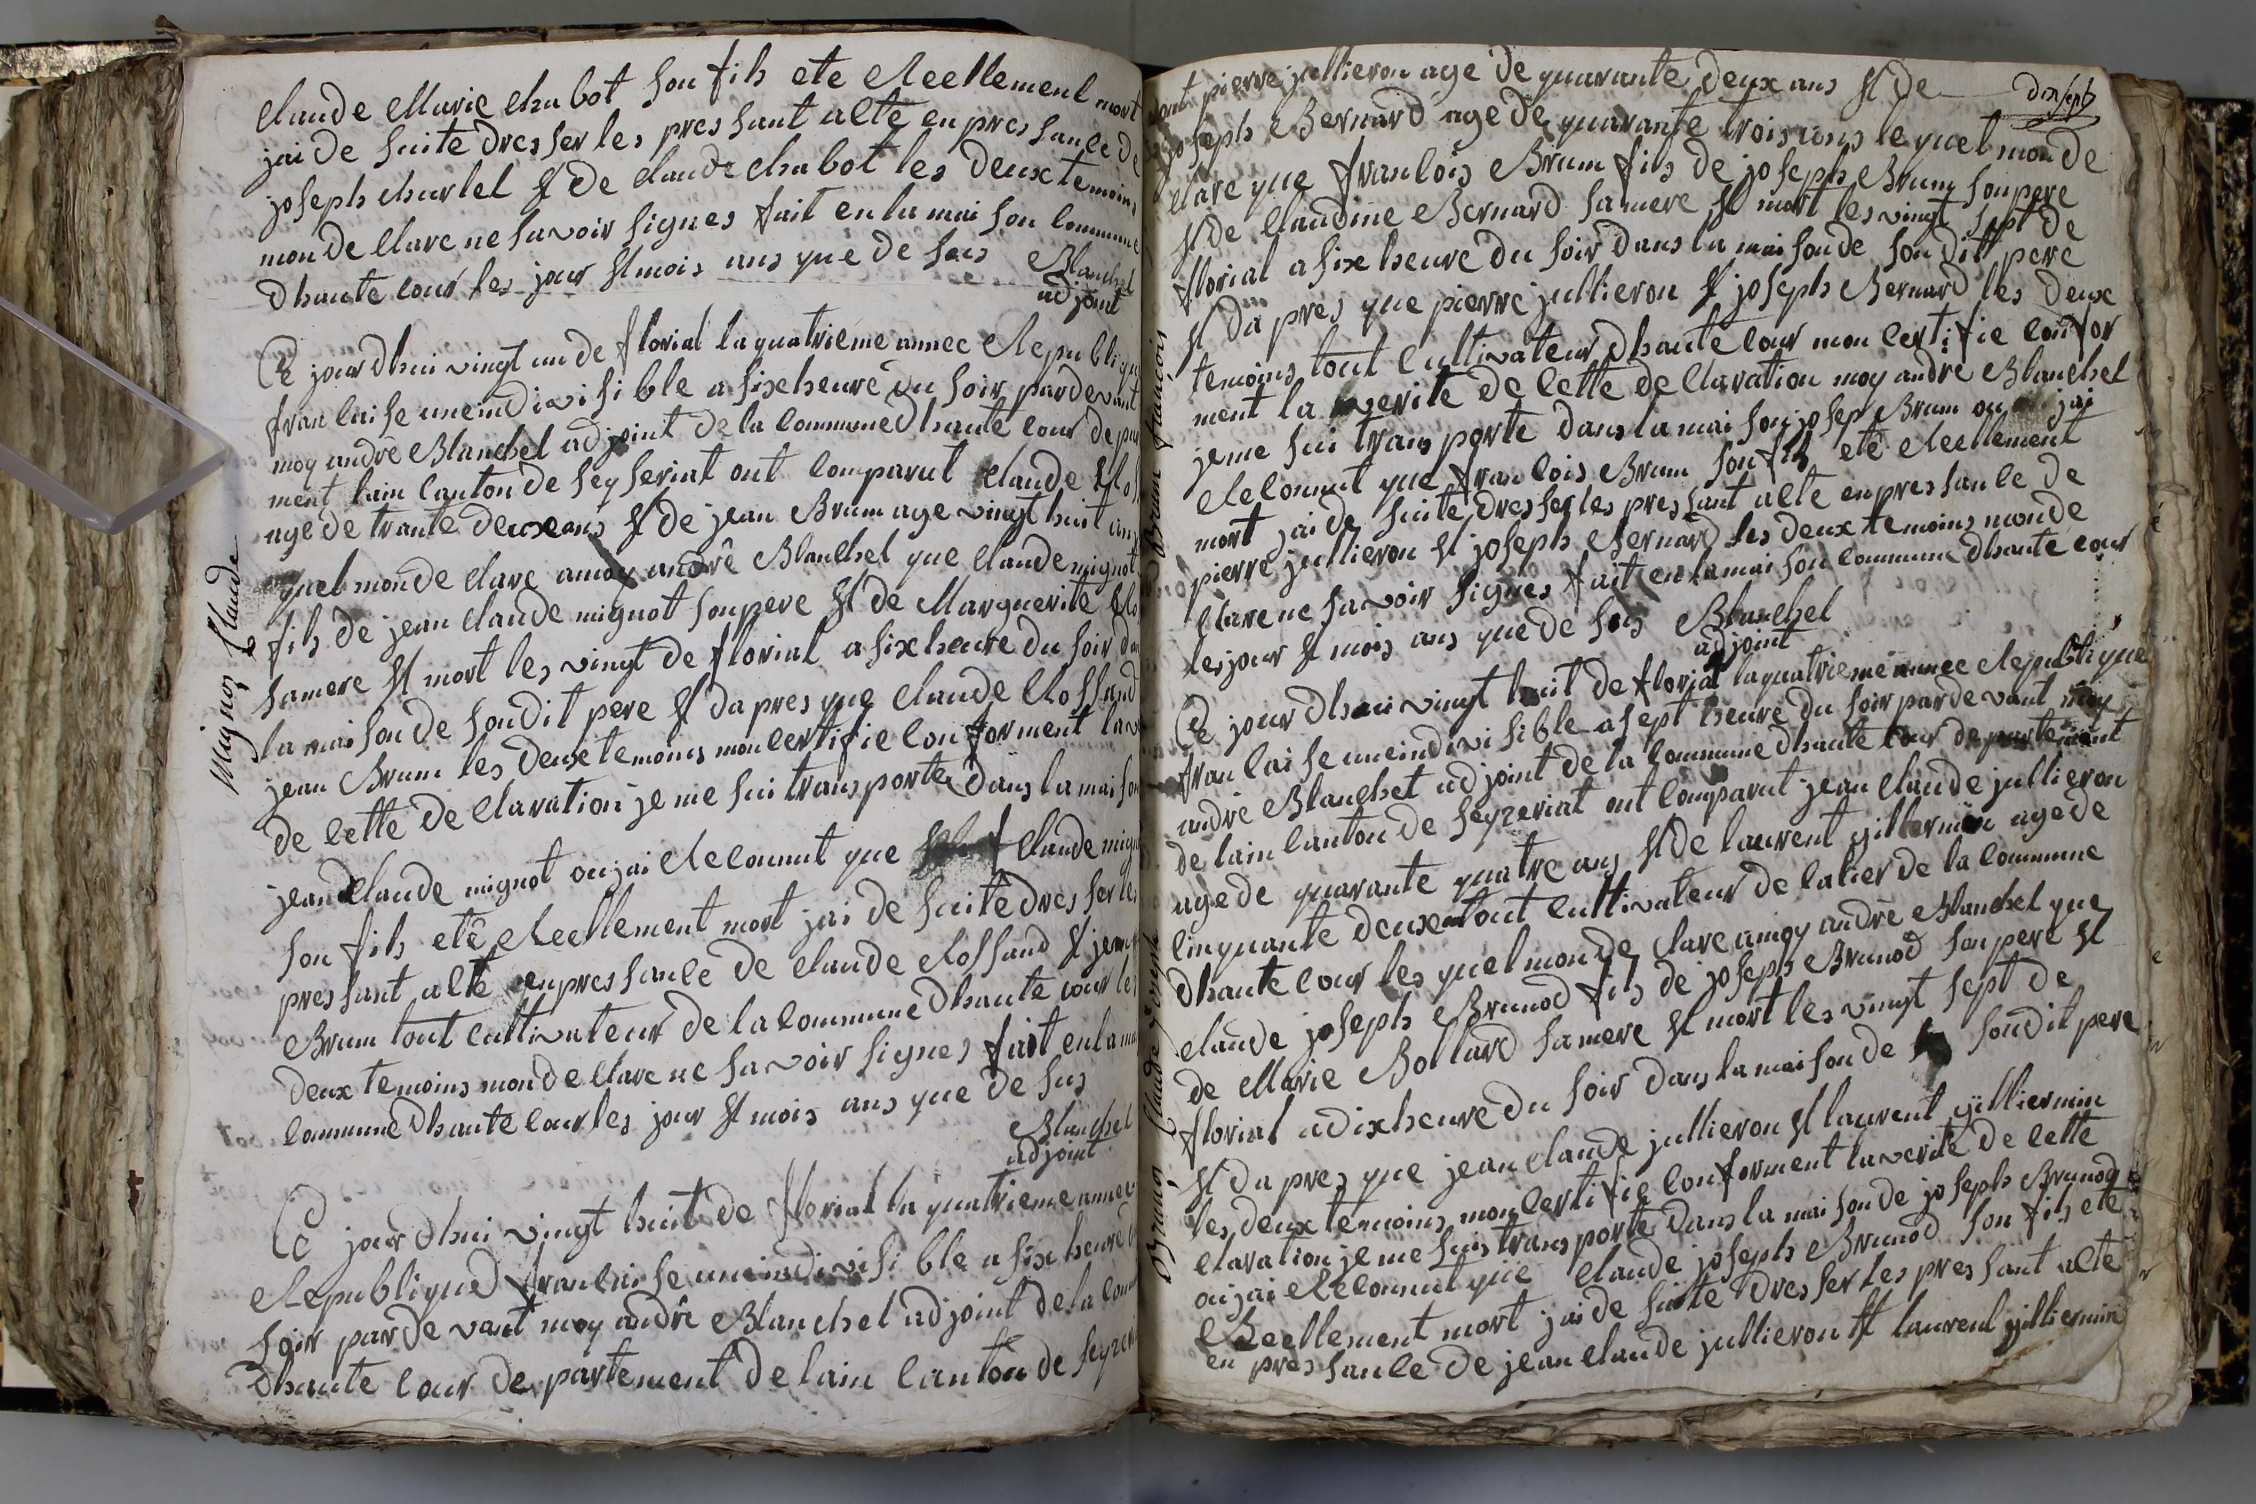 Claude Marie chabot son fils ete Reellement mort
jai de suite dresser les pressant alte en pressance de
joseph charlet et de claude chabot les deux temoins
mon de clare ne savoir signes fait en la maison commune
dhaute cour les jour et mois ans que de sus Blanchet
adjoint
Ce jourdhui vingt un de florial la quatrieme annee Republique
francaise une indivisible a six heure du soir pardevant
moy andre Blanchet adjoint de la commune dhaute cour depar
ment lain canton de seyseriat ont comparut claude
age de trante deux ans et de jean Brum age vingt huit ans
quel mon de clare a moy andre Blanchet que claude mignot
fils de jean claude mignot son pere et de Marguerite
sa mere et mort les vingt de florial a six heure du soir
la maison de son dit pere et dapres que claude Rossand
jean Brum les deux temoins mon certifie conforment la
de cette de claration je me sui transporte dans la maison
jean claude mignot ou jai Reconnut que claude
son fils ete Reellement mort jai de suite dresser les
pressant alte en pressance de claude Rossand et jean
Brum tout cultivateur de la commune dhaute cour les
deux temoins mon de clare ne savoir signes fait en la
commune dhaute cour les jour et mois ans que de sus
Blanchet
adjoint
Ce jourdhui vingt huit de florial la quatrieme annee
Republique francaise une indivisible a six heure
soir pardevant moy andre Blanchet adjoint de la
dhaute cour departement de lain canton de
Mignoz Claude
dix sept
pierre jullieron age de quarante deux ans et de
joseph Bernard age de quarante trois ans le quel mon de
clare que francois Brum fils de joseph Brum son pere
et de claudine Bernard sa mere et mort les vingt sept de
florial a six heure du soir dans la maison de son dit pere
et dapres que pierre jullieron et joseph Bernard les deux
temoins tout cultivateur dhaute cour mon certifie confor
ment la verite de cette de claration moy andre Blanchet
je me sui transporte dans la maison josep Brum ou jai
Reconnut que francois Brum son fils ete Reellement
mort jai de suite dresser les pressant alte en pressance de
pierre jullieron et joseph Bernard les deux temoins mon de
clare ne savoir signes fait en la maison commune dhaute cour
les jour et mois ans que de sus Blanchet
adjoint
Ce jourdhui vingt huit de florial la quatrieme annee Republique
francaise une indivisible a sept heure du soir pardevant moy
andre Blanchet adjoint de la commune dhaute cour departement
de lain canton de seyzeriat ont comparut jean claude jullieron
age de quarante quatre ans et de laurent gillermin age de
cinquante deux tout cultivateur de latier de la commune
dhaute cour les quel mon de clare a moy andre Blanchet que
claude joseph Brunod fils de joseph Brunod son pere et
de Marie Bollard sa mere et mort les vingt sept de
florial a dix heure du soir dans la maison de son dit pere
et dapres que jean claude jullieron et laurent gilliermin
les deux temoins mon certifie conforment la verite de cette de
claration je me suis transporte dans la maison de joseph Brunod
ou jai Reconnut que claude joseph Brunod son fils ete
Reellement mort jai de suite dresser les pressant alte
en pressance de jean claude jullieron et laurent gilliermin
Brum francois
Brunoz Claude joseph